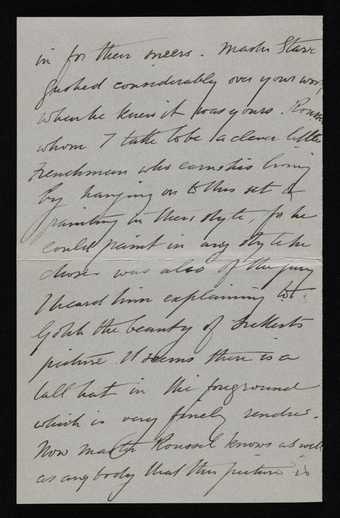 in for their sneers. Master Starr
gushed considerably over your work
when he knew it was yours. Roussel
whom I take to be a clever little
Frenchman who earns his living
by hanging on to this set &
painting in their style, for he
could paint in any style he
chose was also of the jury
I heard him explaining to
the beauty of Sickerts
picture. It seems there is a
tall hat in the foreground
which is very finely render.
Now master Roussel knows as well
as anybody that this picture is